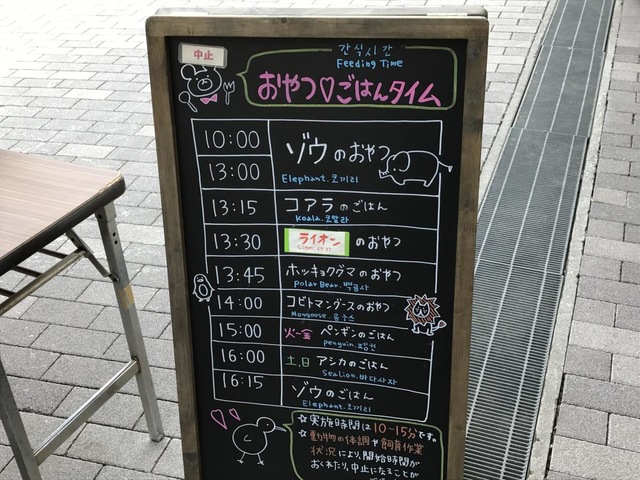 中止
간식시간
Feeding Time
おやつ♡ごはんタイム
10:00
13:00
ゾウのおやつ
Elephant.코끼리
13:15
コアラのごはん
koala.코알라
13:30
ライオンのおやつ
13:45
ホッキョクグマのおやつ
Polar Bear.백곰사
14:00
コビトマングースのおやつ
Mongoose.몽구스
15:00
火〜金 ペンギンのごはん
penguin.펭귄
16:00
土.日 アシカのごはん
Sealion.바다사자
16:15
ゾウのごはん
Elephant.코끼리
☆実施時間は10-15分です。
☆動物の体調や飼育作業
状況により、開始時間が
おくれたり、中止になることが